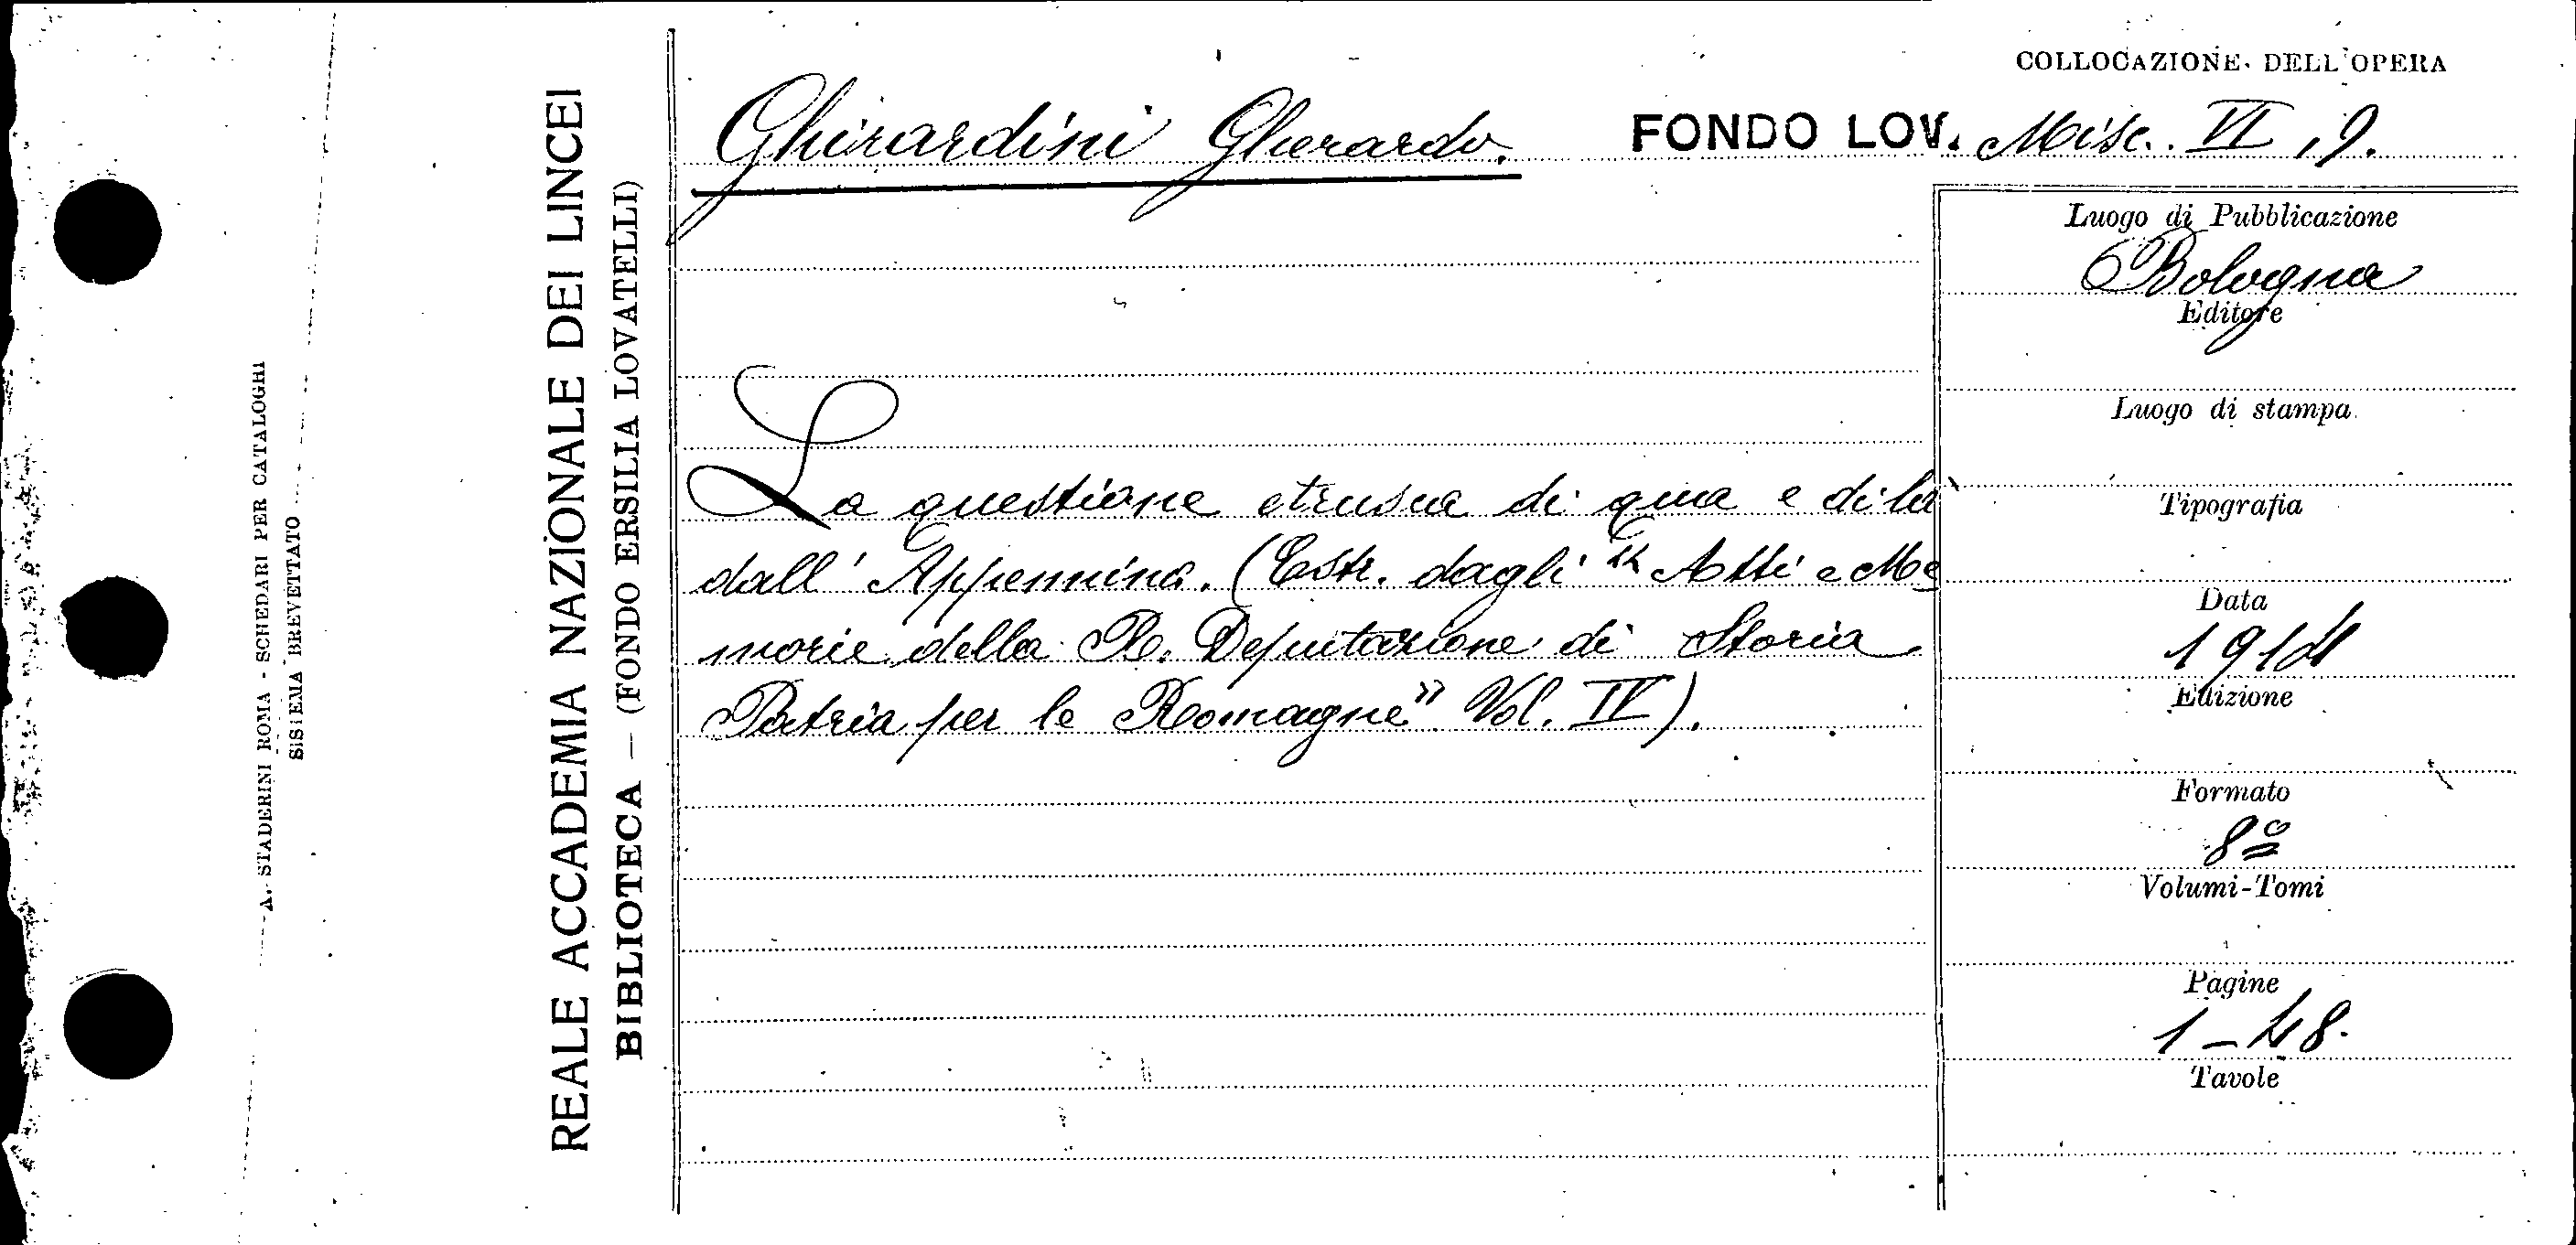 COLLOCAZIONE DELL'OPERA
Ghirardini Gherardo.
FONDO LOV. Misc. VI, 9.
REALE ACCADEMIA NAZIONALE DEI LINCEI
BIBLIOTECA — (FONDO ERSILIA LOVATELLI)
A. STADERINI ROMA - SCHEDARI PER CATALOGHI
SISTEMA BREVETTATO
La questione etrusca di qua e di là
dall'Appennino. (Estr. dagli "Atti e Me
morie della R. Deputazione di Storia
Patria per le Romagne" Vol. IV).
Luogo di Pubblicazione
Bologna
Editore
Luogo di stampa
Tipografia
Data
1914
Edizione
Formato
8º
Volumi-Tomi
Pagine
1-48.
Tavole